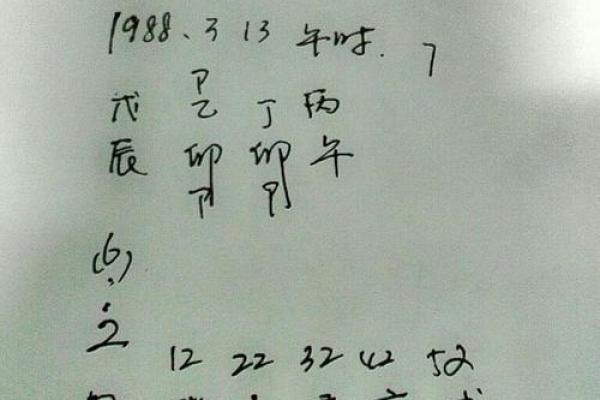 1988、3 13 午时.
P
戊 乙 丁 丙
辰 卯 卯 午
P P
(6)
2 12 22 32 42 52